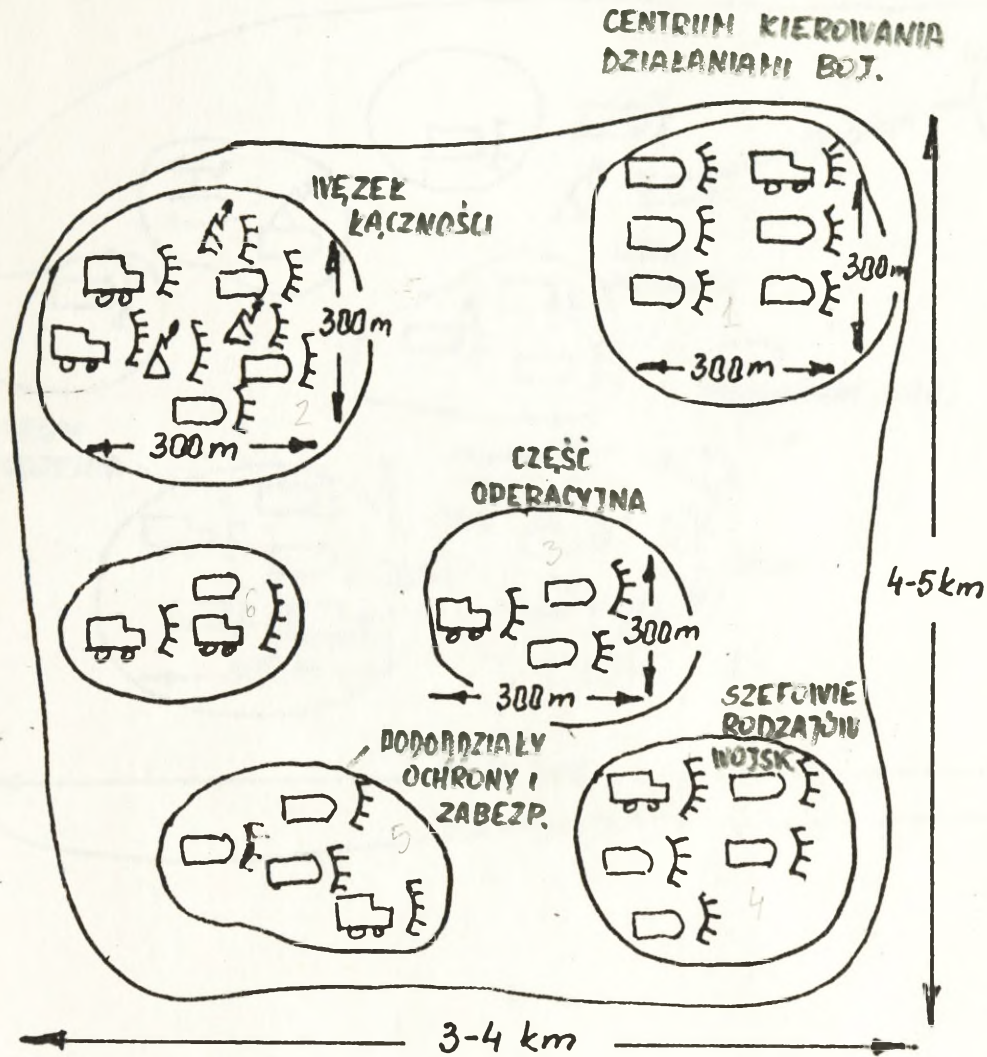 CENTRUM KIEROWANIA
DZIAŁANIAMI BOJ.
WĘZEŁ
ŁĄCZNOŚCI
300m
300m
1
300m
2
300m
CZĘŚĆ
OPERACYJNA
3
300m
300m
4-5km
6
SZEFOWIE
RODZAJÓW
WOJSK
PODODDZIAŁY
OCHRONY I
ZABEZP.
5
4
3-4 km